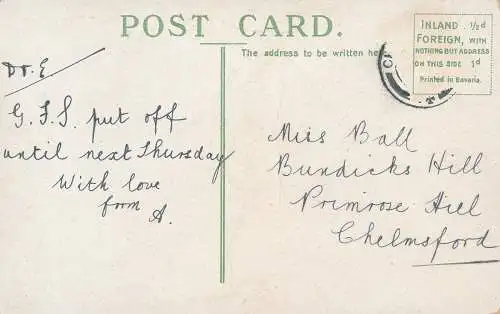 POST CARD.
The address to be written here
INLAND ½d
FOREIGN, WITH
NOTHING BUT ADDRESS
ON THIS SIDE 1d
Printed in Bavaria.
Dr. E
G.F.S. put off
until next Thursday
With love
form A.
Miss Ball
Bundicks Hill
Primrose Hill
Chelmsford